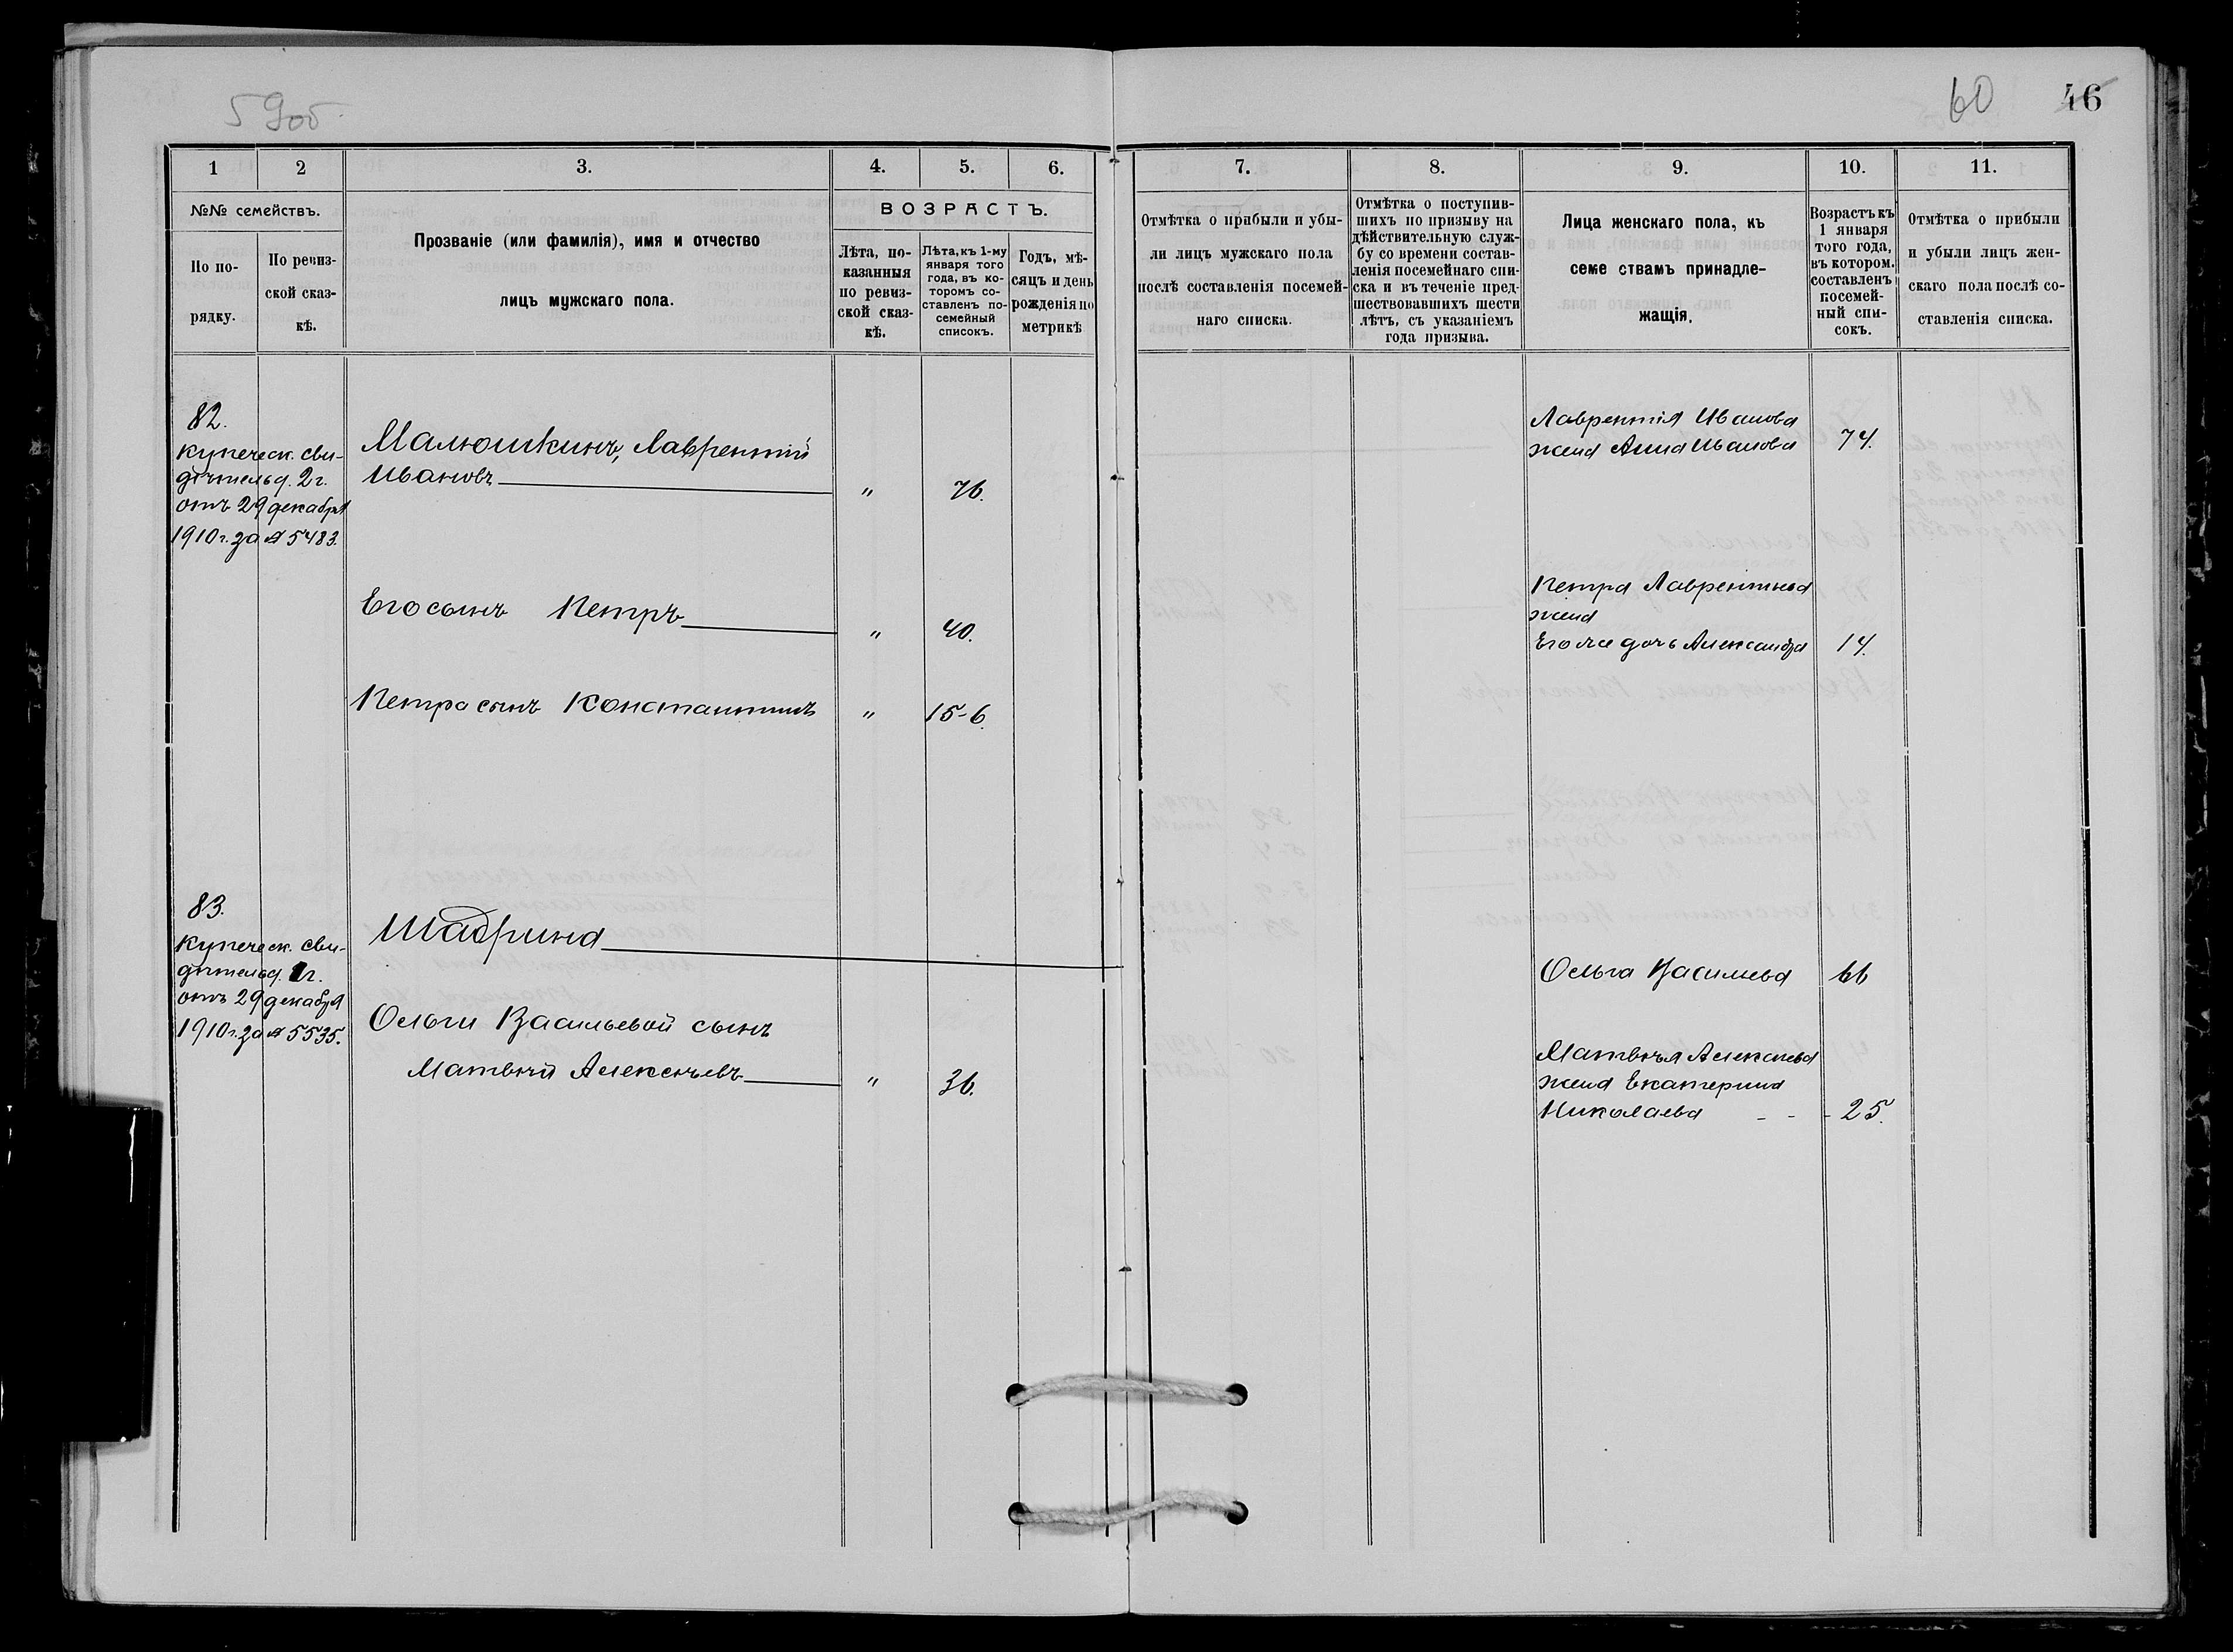 59об
60 46
1
2
3.
4.
5.
6.
№№ семействъ.
По по-
рядку.
По ревиз-
ской сказ-
кѣ.
Прозваніе (или фамилія), имя и отчество
лицъ мужскаго пола.
ВОЗРАСТЪ.
Лѣта, по-
казанныя
по ревиз-
ской сказ-
кѣ.
Лѣта, къ 1-му
января того
года, въ ко-
торомъ со-
ставленъ по-
семейный
списокъ.
Годъ, мѣ-
сяцъ и день
рожденія по
метрикѣ
7.
8.
9.
10.
11.
Отмѣтка о прибыли и убы-
ли лицъ мужскаго пола
послѣ составленія посемей-
наго списка.
Отмѣтка о поступив-
шихъ по призыву на
дѣйствительную служ-
бу со времени состав-
ленія посемейнаго спи-
ска и въ теченіе пред-
шествовавшихъ шести
лѣтъ, съ указаніемъ
года призыва.
Лица женскаго пола, къ
семе ствамъ принадле-
жащія.
Возрастъ къ
1 января
того года,
въ котором.
составленъ
посемей-
ный спи-
сокъ.
Отмѣтка о прибыли
и убыли лицъ жен-
скаго пола послѣ со-
ставленія списка.
82.
купеческ. сви-
дѣтельд. 2 г.
отъ 29 декабря
1910 г. за № 5483.
Малюшкинъ, Лаврентій
Ивановъ " 76.
Его сынъ Петръ " 40.
Петра сынъ Константинъ " 15-6.
Лаврентія Иванова
жена Анна Иванова 74.
Петра Лаврентьева
жена
Его же дочь Александра 14.
83.
купеческ. сви-
дѣтельд. 1 г.
отъ 29 декабря
1910 г. за № 5535.
Шадрина
Ольги Васильевой сынъ
Матвѣй Алексѣевъ " 36.
Ольга Васильева 66
Матвѣя Алексѣева
жена Екатерина
Николаева - - - 25.